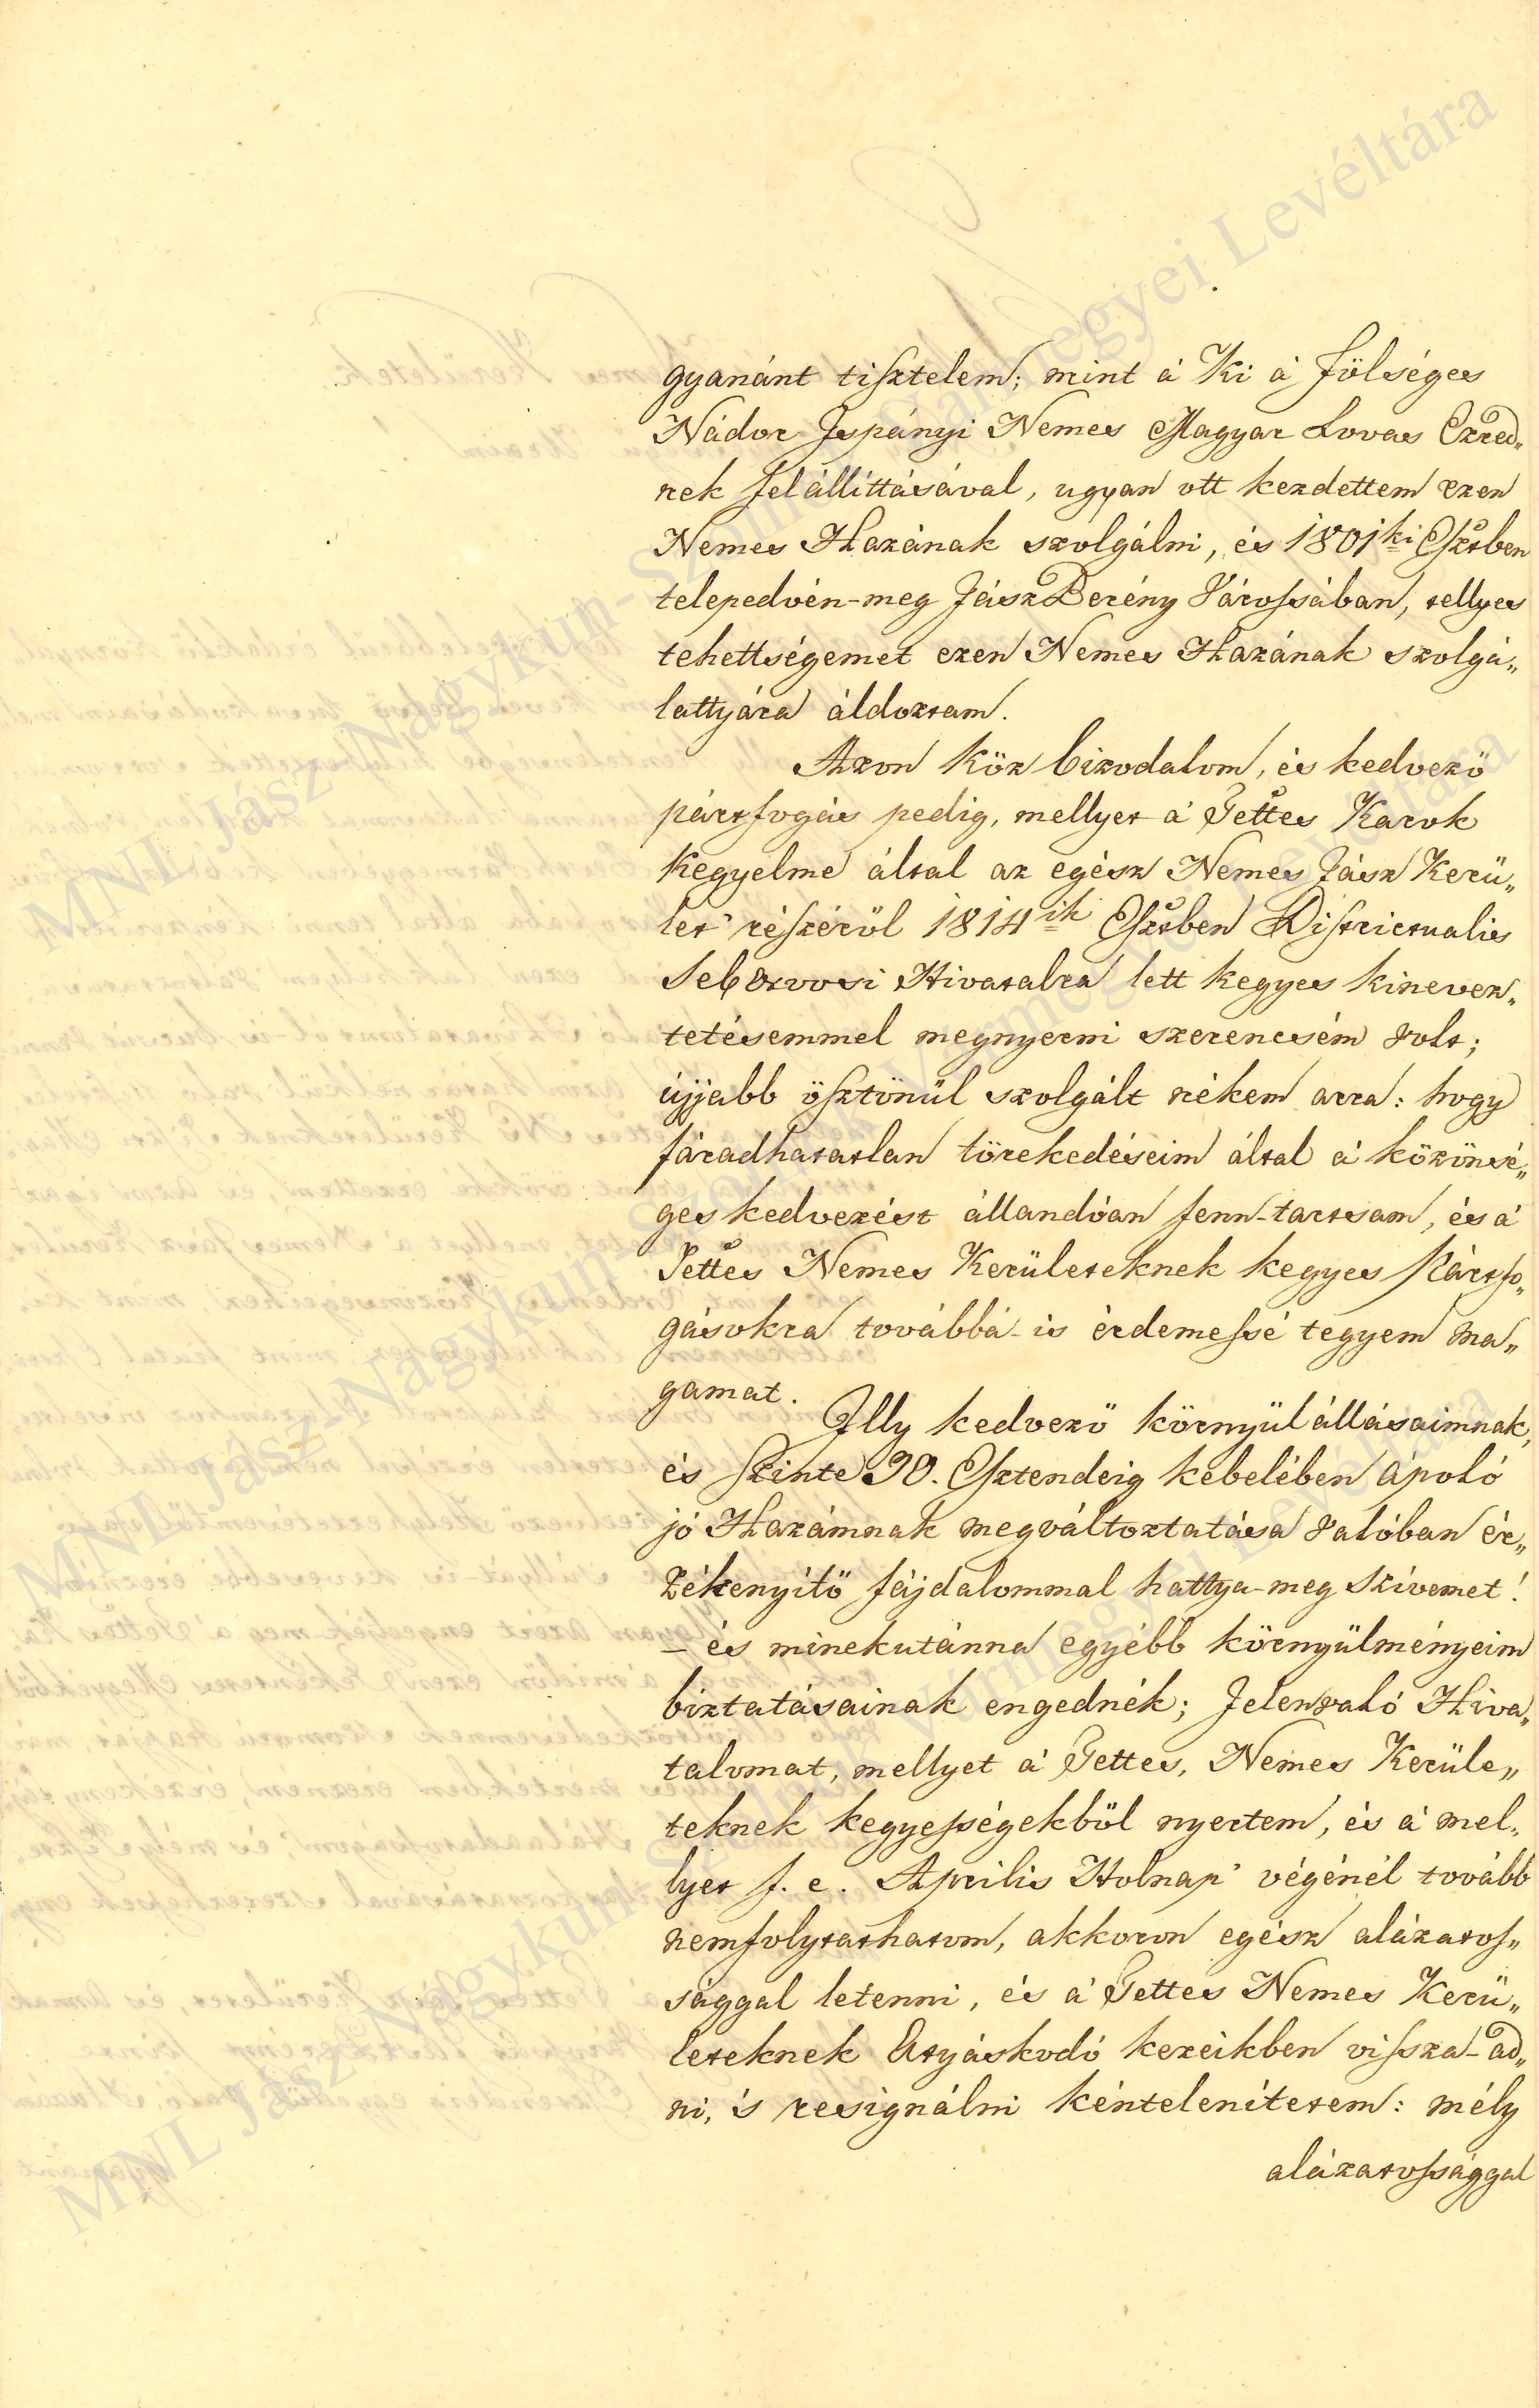 gyanánt tisztelem; mint á Ki á Fölséges
Nádor Ispányi Nemes Magyar Lovas Ezred„
nek felállíttásával, ugyan ott kezdettem ezen
Nemes Hazának szolgálni, és 1801ki Esztben
telepedvén-meg JászBerény Várossában, tellyes
tehettségemet ezen Nemes Hazának szolgá„
lattyára áldoztam.
Azon köz bizodalom, és kedvező
pártfogás pedig, mellyet á Tettes Karok
Kegyelme által az egész Nemes Jász Kerü„
let' részéről 1814ik Esztben Districtualis
Seb Orvosi Hivatalra lett kegyes kinevez„
tetésemmel megnyerni szerencsém volt;
újjabb ösztönül szolgált nékem arra: hogy
fáradhatatlan törekedéseim által á közönsé„
ges kedvezést állandóan fenn-tartsam, és á
Tettes Nemes Kerületeknek kegyes Pártfo„
gásokra továbbá-is érdemessé tegyem ma„
gamat.
Illy kedvező környülállásaimnak,
és szinte 30. Esztendeig kebelében ápoló
jó Hazámnak megváltoztatása valóban ér„
zékenyítő fájdalommal hattya-meg szívemet!
– és minekutánna egyébb környülményeim
biztatásainak engednék; Jelenvaló Hiva„
talomat, mellyet á Tettes, Nemes Kerüle„
teknek kegyességekből nyertem, és á mel„
lyet f. e. Aprilis Holnap' végénél tovább
nemfolytathatom, akkoron egész alázatos„
sággal letenni, és á Tettes Nemes Kerü„
leteknek Atyáskodó kezeikben vissza-ad„
ni, 's resignálni kénteleníttetem: mély
alázatossággal
MNL Jász-Nagykun-Szolnok Vármegyei Levéltára
MNL Jász-Nagykun-Szolnok Vármegyei Levéltára
MNL Jász-Nagykun-Szolnok Vármegyei Levéltára